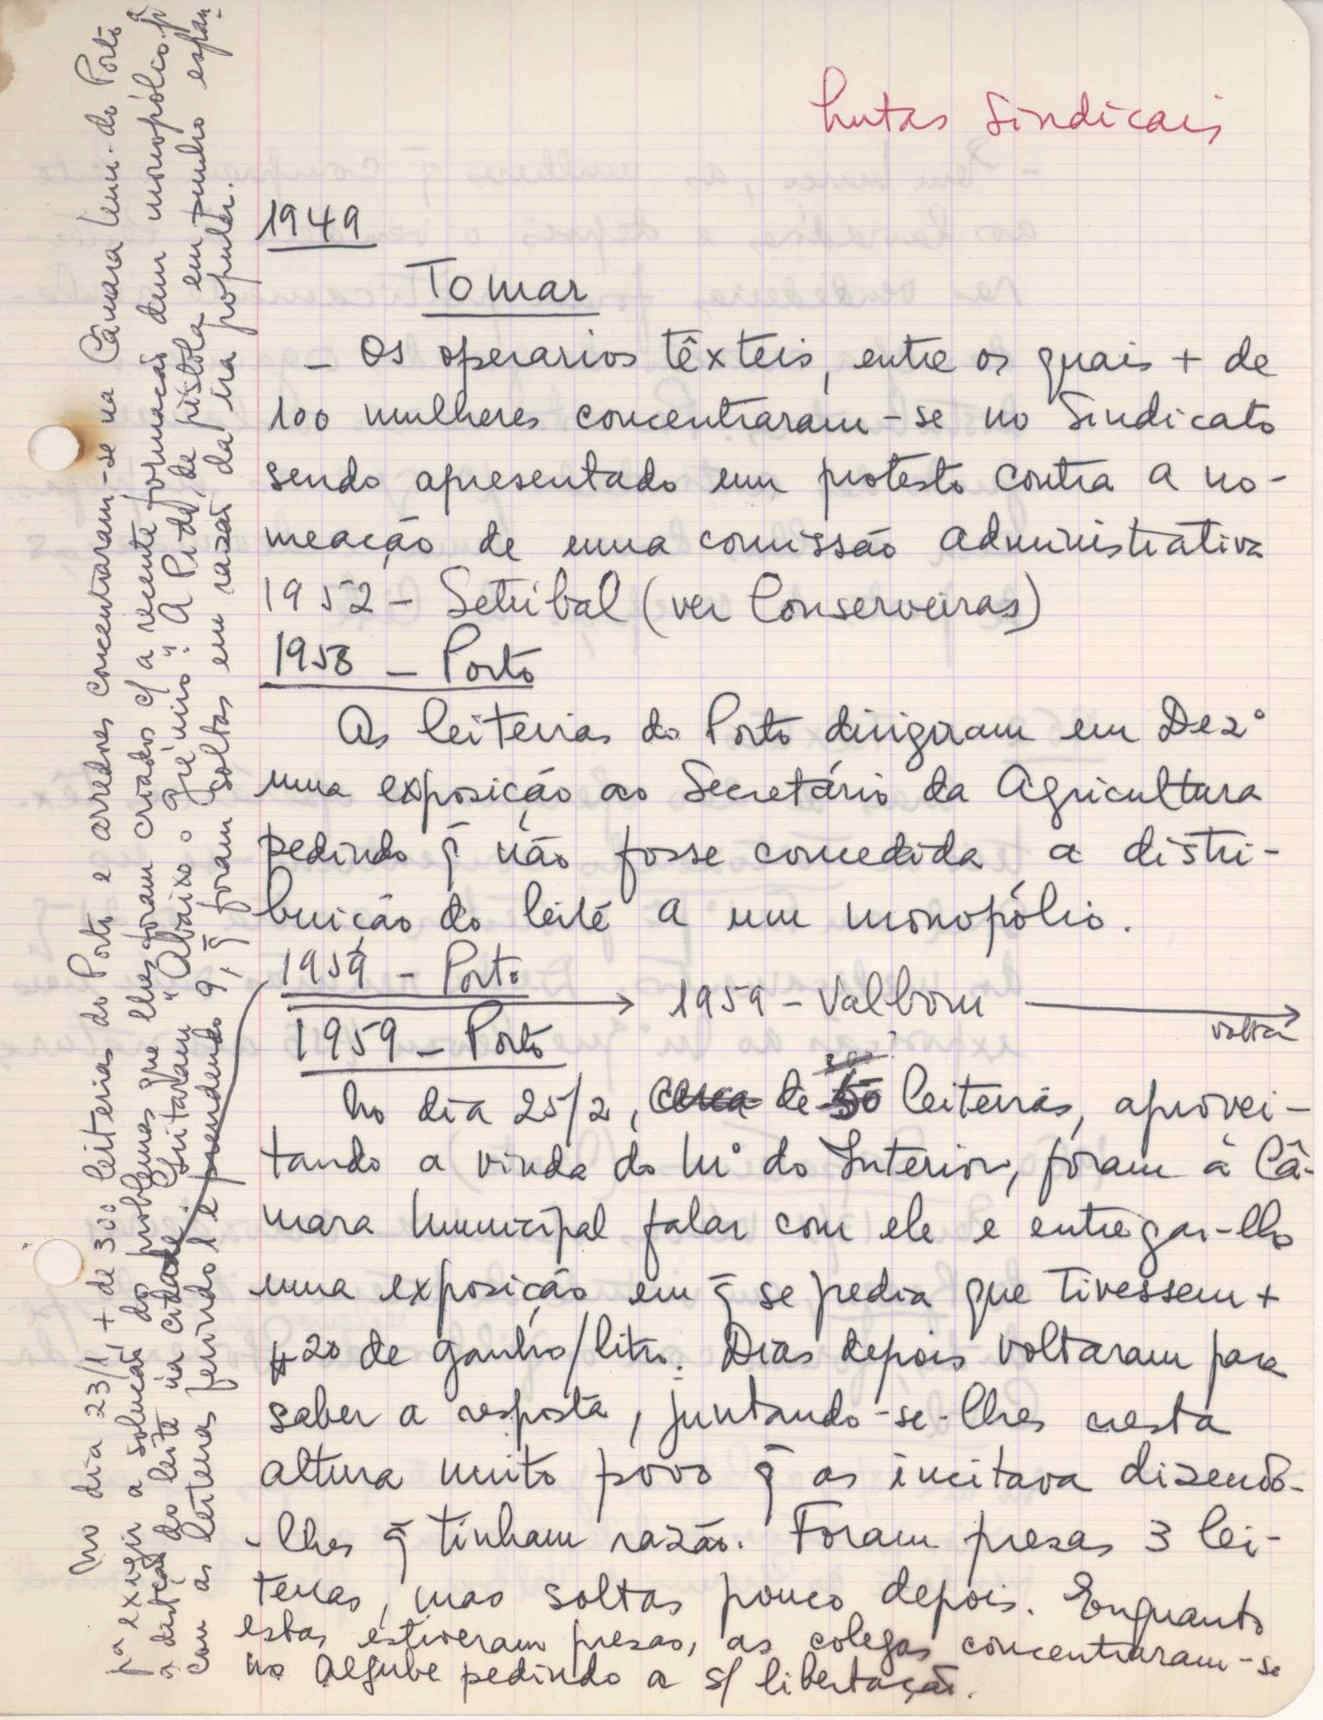 Lutas Sindicais
1949
Tomar
- Os operarios têxteis, entre os quais + de
100 mulheres concentraram-se no Sindicato
sendo apresentado um protesto contra a no-
meação de uma comissão administrativa
1952 - Setúbal (ver Conserveiras)
1958 - Porto
As leiteiras do Porto dirigiram em Dezº
uma exposição ao Secretário da Agricultura
pedindo q̃ não fosse concedida a distri-
buição do leite a um monopólio.
1959 - Porto
1959 - Valbom
voltar
1959 - Porto
No dia 25/2, cerca de 50 leiteiras, aprovei-
tando a vinda do Mº do Interior, foram à Câ-
mara Municipal falar com ele e entregar-lho
uma exposição em q̃ se pedia que tivessem +
$20 de ganho/litro. Dias depois voltaram para
saber a resposta, juntando-se-lhes nesta
altura muito povo q̃ as incitava dizendo-
-lhes q̃ tinham razão. Foram presas 3 lei-
teiras, mas soltas pouco depois. Enquanto
estas estiveram presas, as colegas concentraram-se
no Aljube pedindo a s/ libertação.
No dia 23/1, + de 300 leiteiras do Porto e arredores concentraram-se na Câmara Mun. do Porto
pª exigir a solução do problemas que lhes foram criados c/ a recente formação dum monopólico pª
a distção do leite na cidade. Gritaram "Abaixo o Grémio". A Pide, de pistola em punho espan-
cou as leiteiras ferindo 1 e prendendo 9, q̃ foram soltas em razão da ira popular.